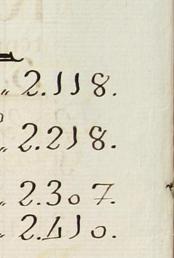 „ 2.118.
„ 2.218.
„ 2.307.
„ 2.410.